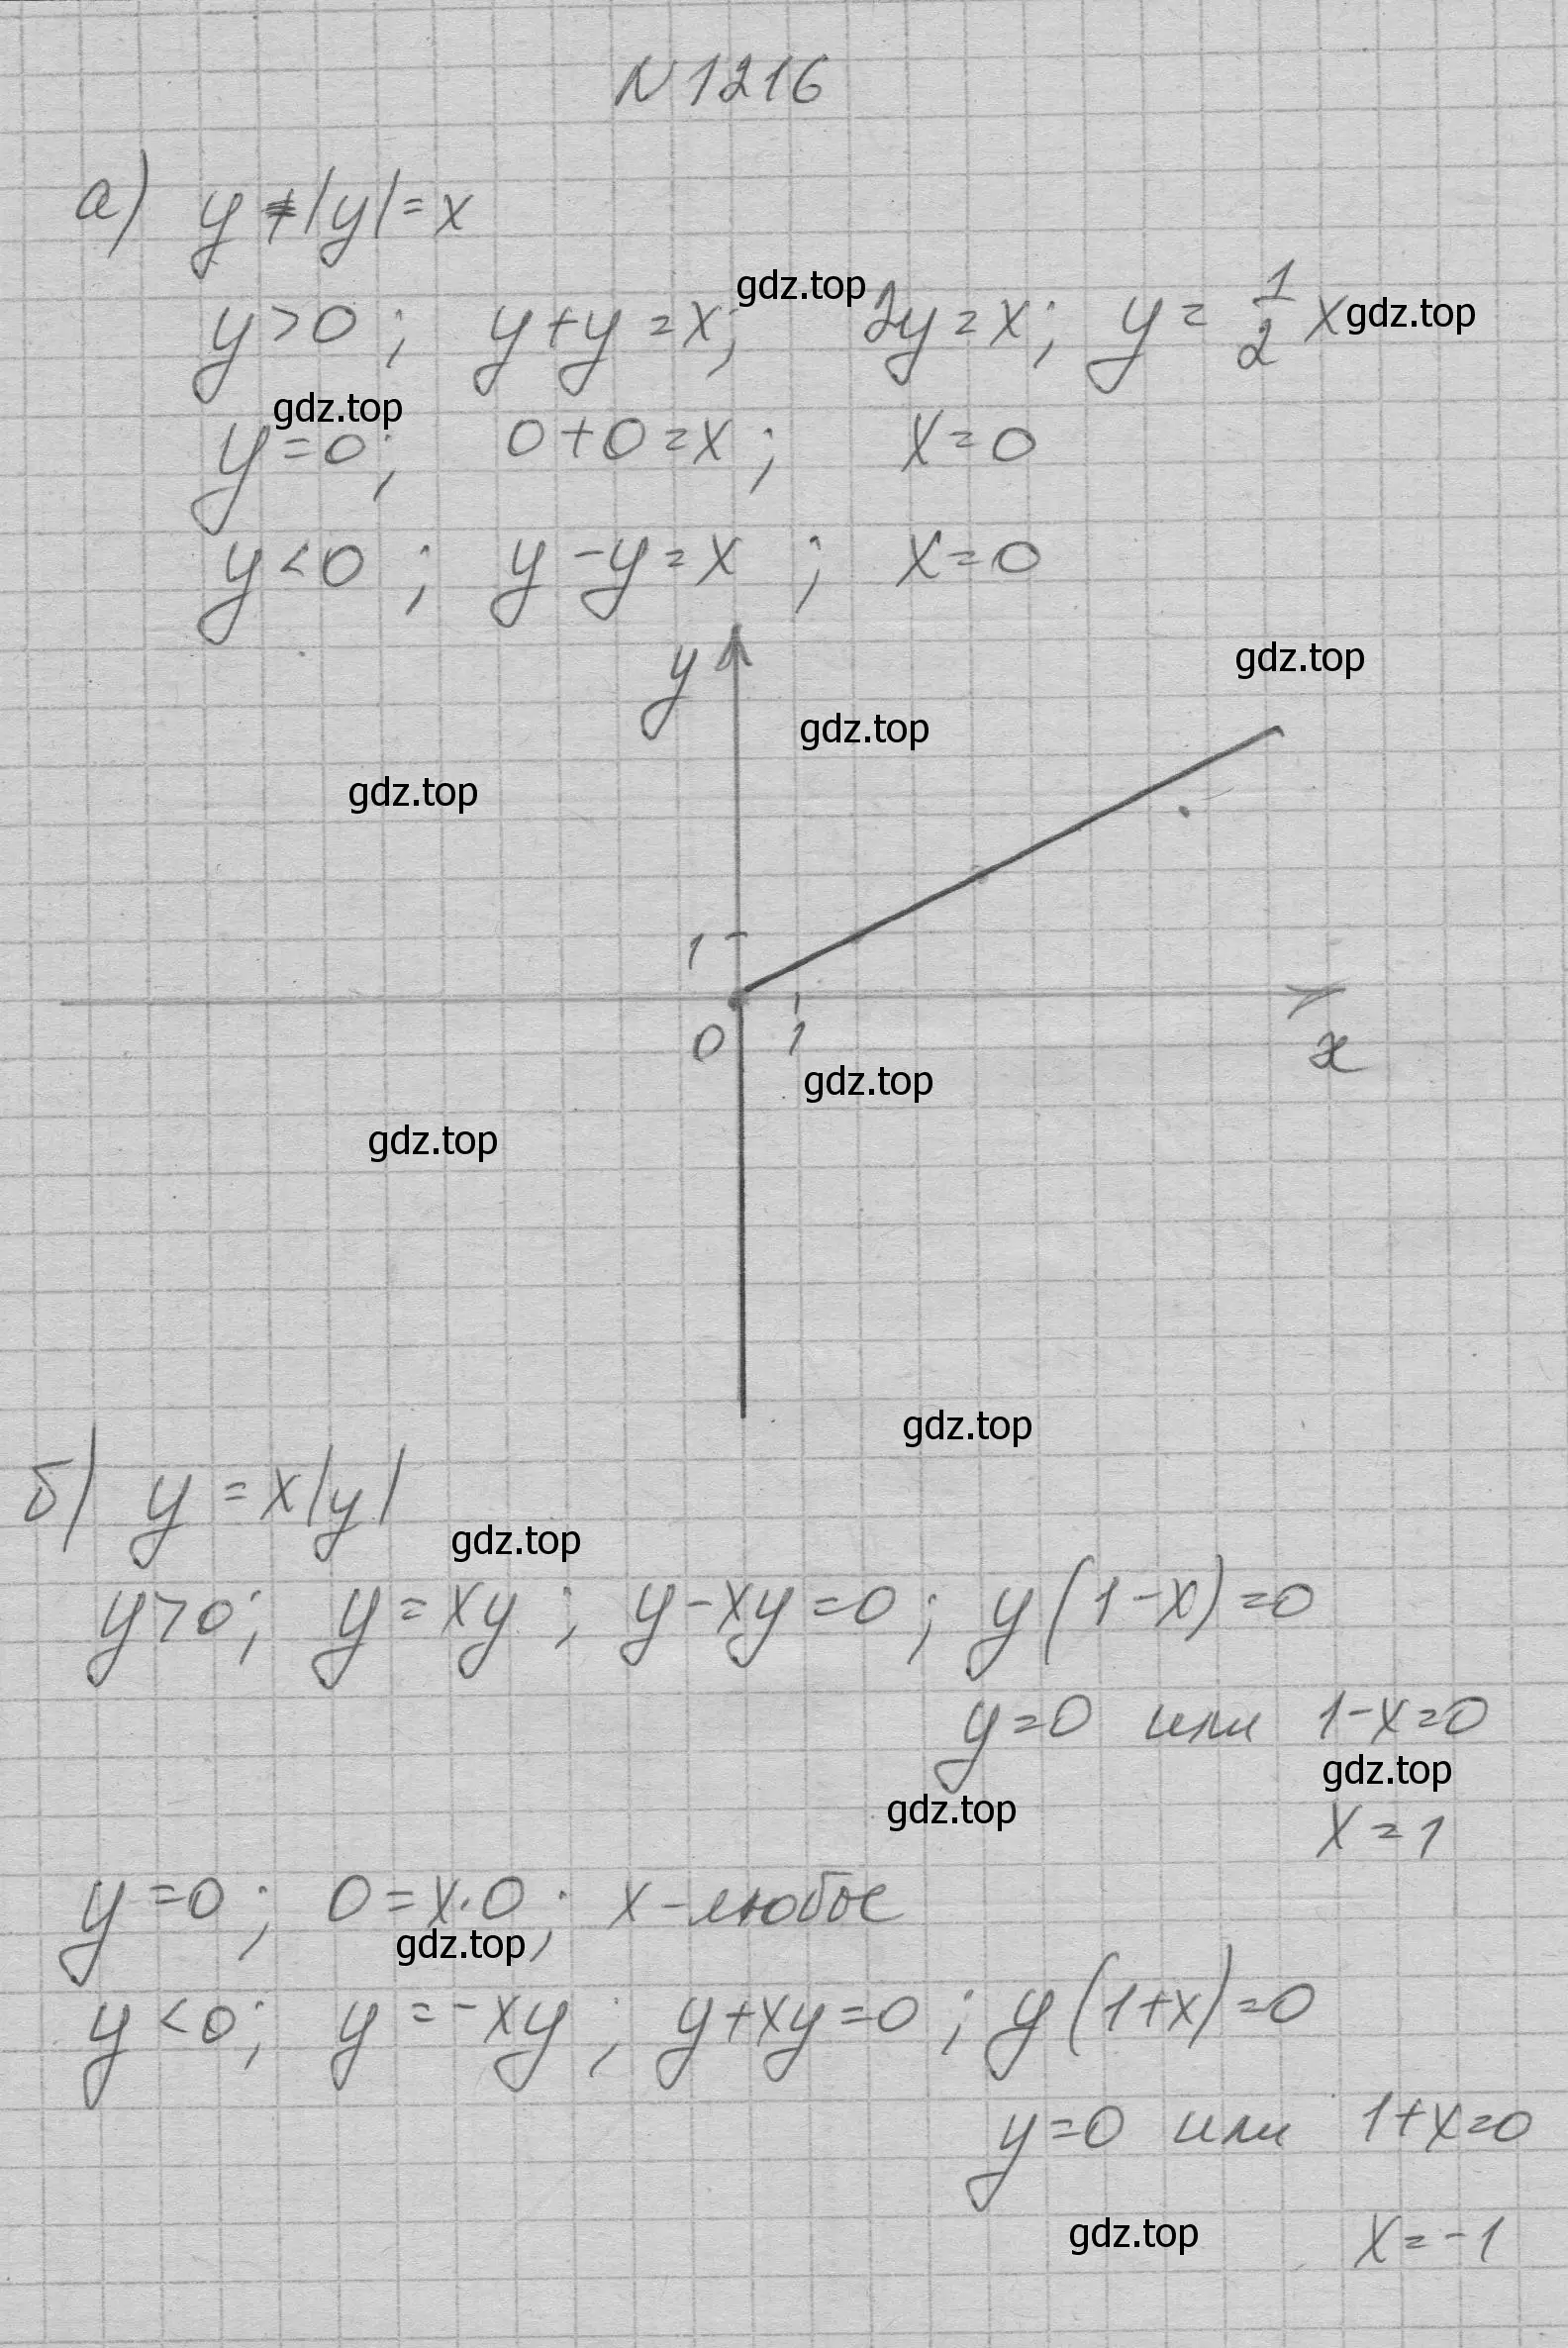 N 1216
а) y + |y| = x
gdz.top
y > 0 ; y + y = x ; 2y = x ; y = 1/2 x gdz.top
gdz.top
y = 0 ; 0 + 0 = x ; x = 0
y < 0 ; y - y = x ; x = 0
y gdz.top
gdz.top
gdz.top
1
0 1 x
gdz.top
gdz.top
gdz.top
б) y = x|y|
gdz.top
y > 0 ; y = xy ; y - xy = 0 ; y(1 - x) = 0
y = 0 или 1 - x = 0
gdz.top
gdz.top
x = 1
y = 0 ; 0 = x · 0 ; x - любое
gdz.top
y < 0 ; y = -xy ; y + xy = 0 ; y(1 + x) = 0
y = 0 или 1 + x = 0
gdz.top x = -1